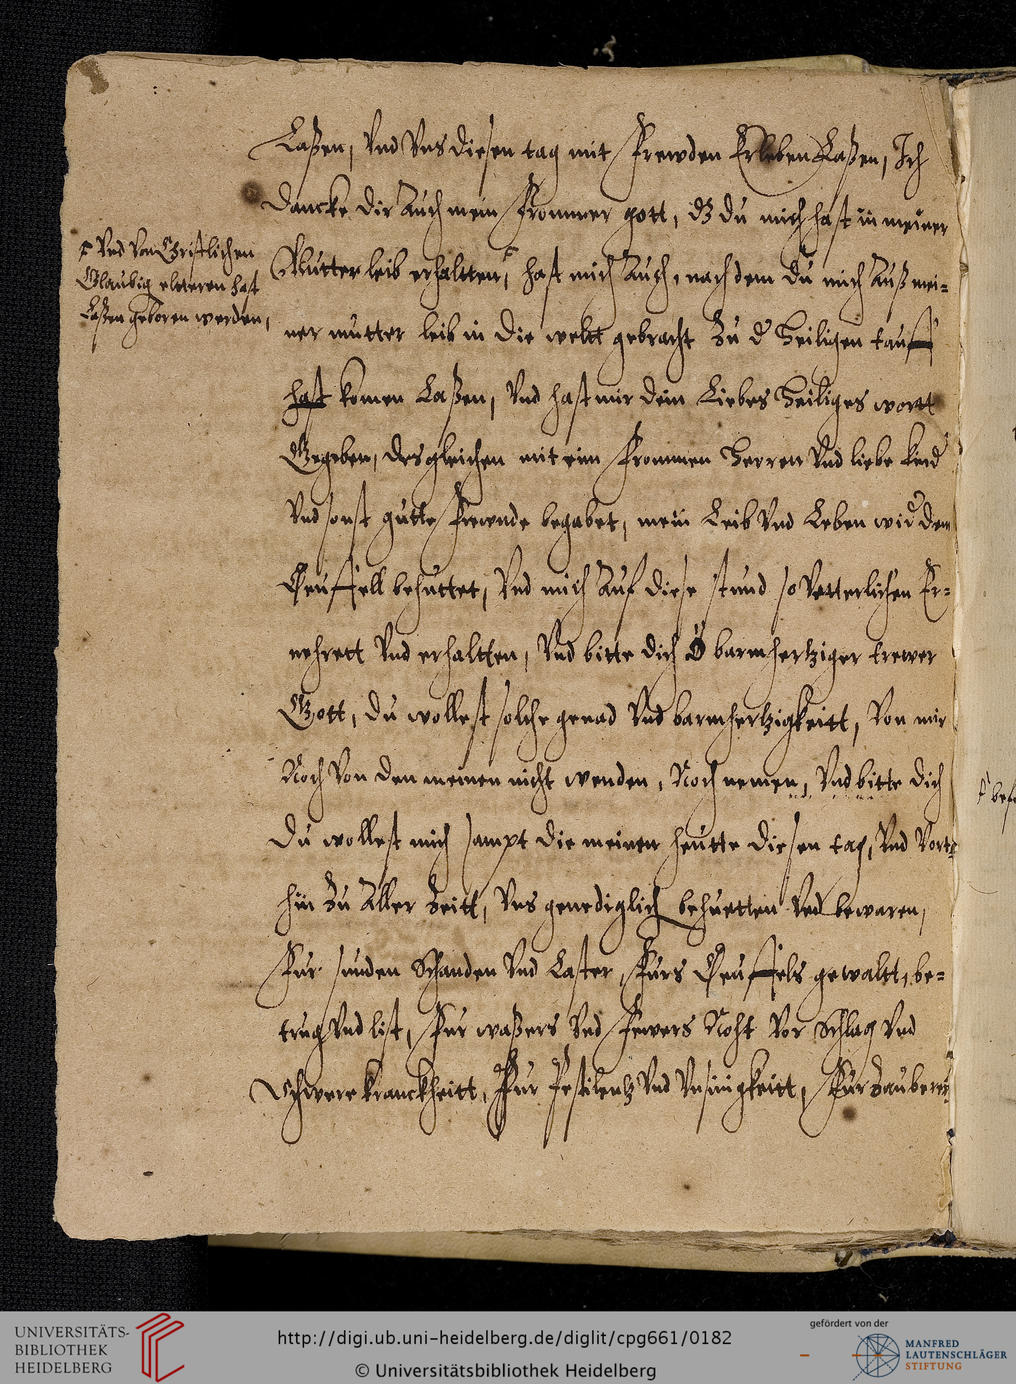 Laßen, Vnd Vns diesen tag mit Frewden Erleben Laßen, Ich
dancke dir Auch mein Frommer gott, dz du mich hast in meiner
Mutter leib erhaltten, hast mich Auch, nach dem du mich Auß mei-
ner mutter leib in die weltt gebracht Zu d Heiligen tauff
hast komen Laßen, Vnd hast mir dein Liebes Heiliges wortt
Gegeben, desgleichen mit eim Frommen Herren Vnd liebe kind
Vnd sonst gutte Frewnde begabet, mein Leib Vnd Leben wider den
Teuffell behuttet, Vnd mich Auf diese stund so Vetterlichen Er-
nehrett Vnd erhaltten, Vnd bitte dich O barmhertziger trewer
Gott, du wollest solche genad Vnd barmhertzigkeitt, Von mir
Noch Von den meinen nicht wenden, Noch nemen, Vnd bitte dich
du wollest mich sampt die meinen heutte diesen tag, Vnd Vort-
hin Zu Aller Zeitt, Vns genediglich behuetten Vnd bewaren,
Fur sunden Schanden Vnd Laster, Furs Teuffels gewaltt, be-
trug Vnd list, Fur waßers Vnd Fewers Noht Vor Schlag Vnd
Schwere kranckheitt, Fur Pestilentz Vnd Vnsinigkeitt, Fur Zauberey
Vnd Von Christlichen
Glaubig elteren hast
Laßen geboren werden,
UNIVERSITÄTS-
BIBLIOTHEK
HEIDELBERG
http://digi.ub.uni-heidelberg.de/diglit/cpg661/0182
© Universitätsbibliothek Heidelberg
gefördert von der
MANFRED
LAUTENSCHLÄGER
STIFTUNG